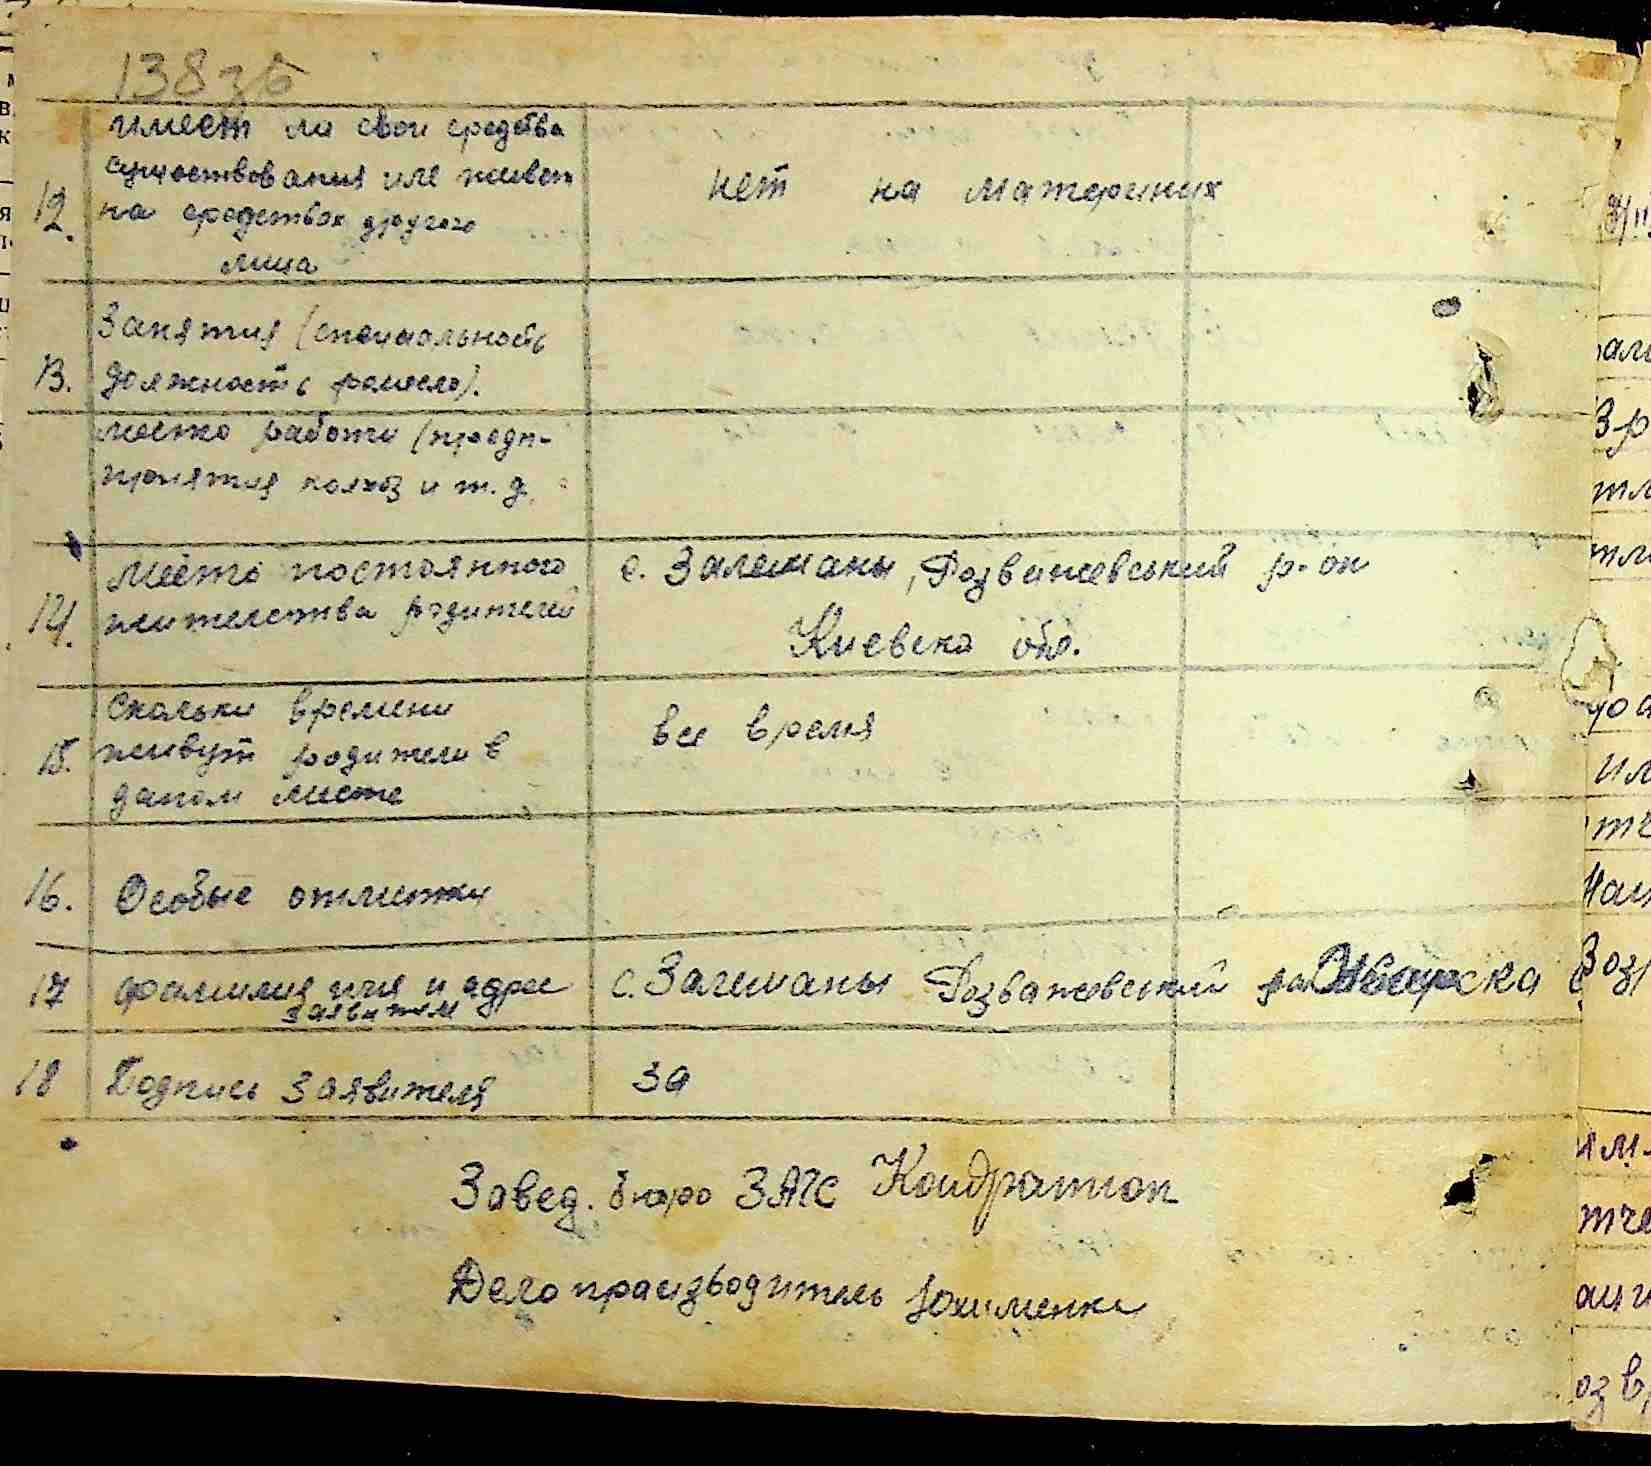 138зв
12. имеет ли свои средства
существования иле живет
на средствах другого
лица
нет на материных
13. Занятия (специальность
должность ремесло).
место работи (предп-
приятия колхоз и т.д.
14. Место постоянного
жителства родителей
с. Залешаны, Розважевський р-он
Киевска обл.
15. Скольки времени
живут родители в
даном месте
все время
16. Особые отметки
17 фамилия имя и адрес
заявителя
с. Залешаны Розважевський
18 Подпись заявителя
за
Завед. бюро ЗАГС Кондратюк
Делопроизводитель Юхименки